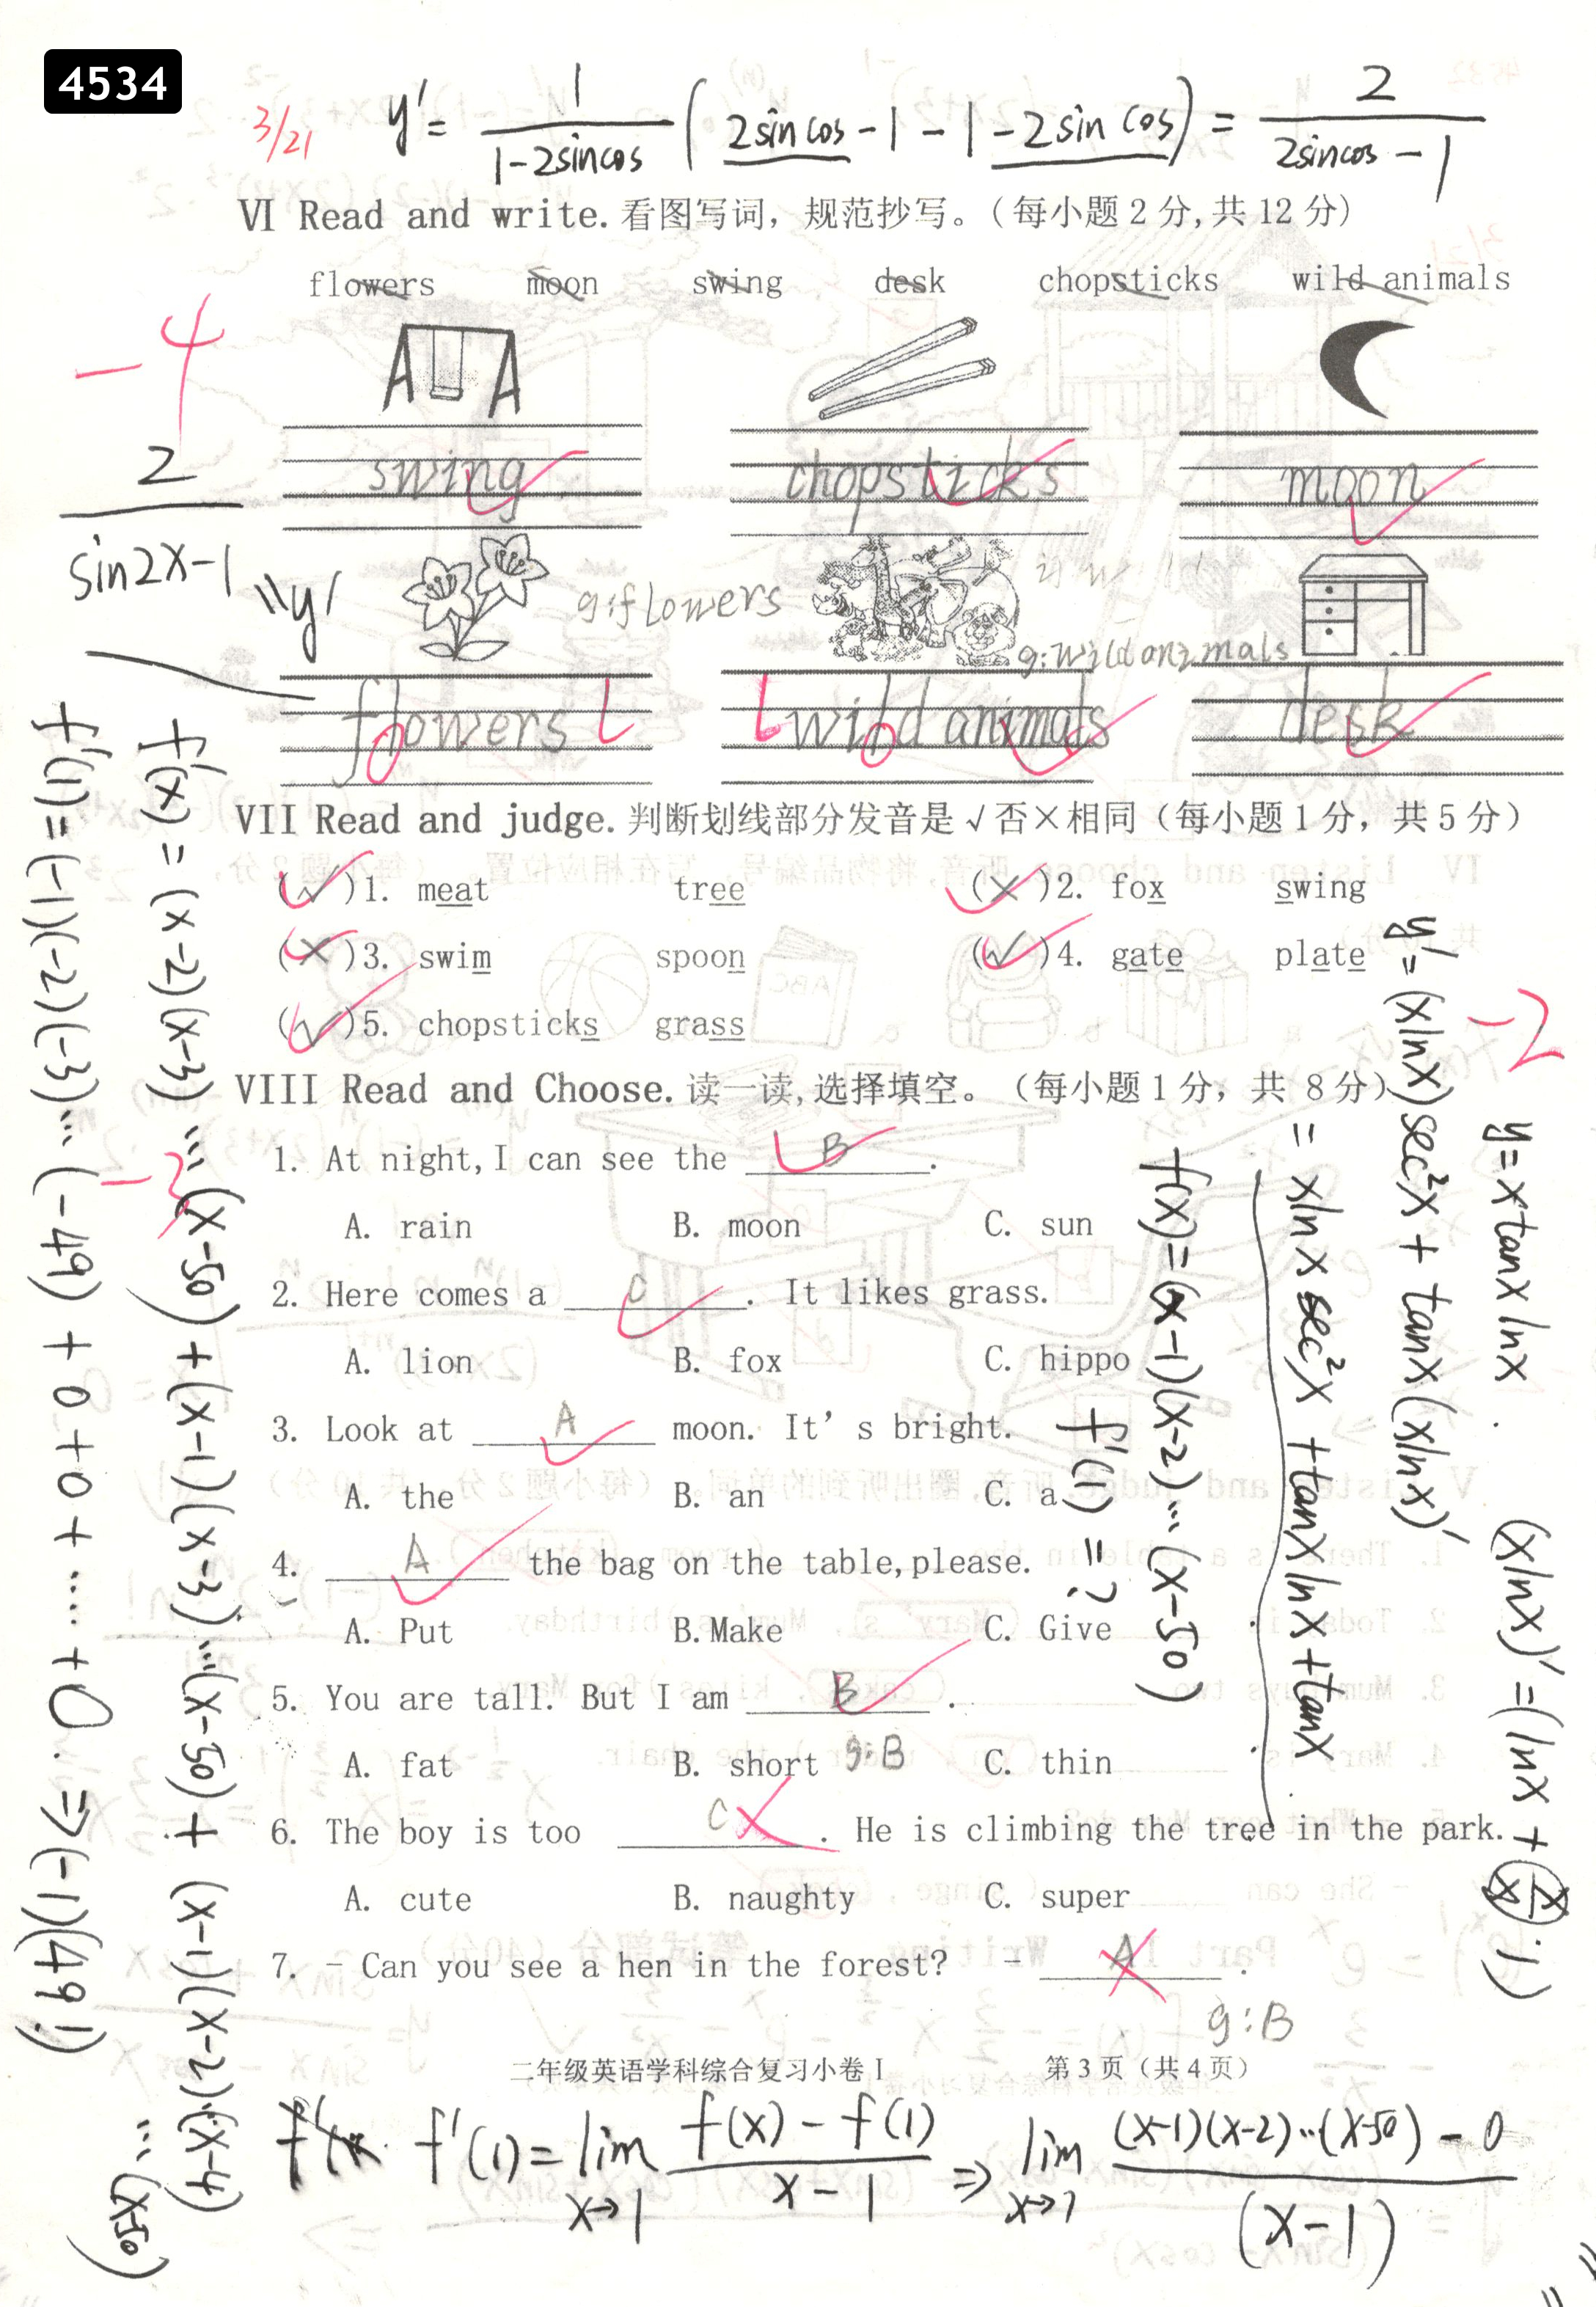 4534
3/21
y' = 1/(1-2sincos) (2sincos-1-1-2sin cos) = 2/(2sincos-1)
VI Read and write.看图写词，规范抄写。(每小题2分,共12分)
flowers moon swing desk chopsticks wild animals
-4
2/(sin2x-1)
"y'
swing chopsticks moon
g:flowers
g:wild animals
flowers wild animals desk
VII Read and judge.判断划线部分发音是√否×相同（每小题1分，共5分）
(√)1. meat tree (×)2. fox swing
(×)3. swim spoon (√)4. gate plate
(√)5. chopsticks grass
-2
VIII Read and Choose.读一读,选择填空。（每小题1分，共 8分）
1. At night,I can see the B.
A. rain B. moon C. sun
2. Here comes a C. It likes grass.
A. lion B. fox C. hippo
3. Look at A moon. It’s bright.
A. the B. an C. a
4. A the bag on the table,please.
A. Put B.Make C. Give
5. You are tall. But I am B.
A. fat B. short g:B C. thin
6. The boy is too C. He is climbing the tree in the park.
A. cute B. naughty C. super
7. - Can you see a hen in the forest? - A.
g:B
二年级英语学科综合复习小卷I 第3页（共4页）
f'(1)=lim x→1 (f(x)-f(1))/(x-1) ⇒ lim x→1 ((x-1)(x-2)…(x-50)-0)/(x-1)
y=xtanx lnx.
(xlnx)'=(lnx+x/x·1)
y'=(xlnx)sec²x+tanx(xlnx)'
=xlnx sec²x+tanxlnx+tanx
f(x)=(x-1)(x-2)…(x-50)
f'(1)=?
f'(x)=(x-2)(x-3)…(x-50)+(x-1)(x-3)…(x-50)+(x-1)(x-2)(x-4)
…(x-50)
-3
f'(1)=(-1)(-2)(-3)…(-49)+0+0+……+0.⇒(-1)(49!)